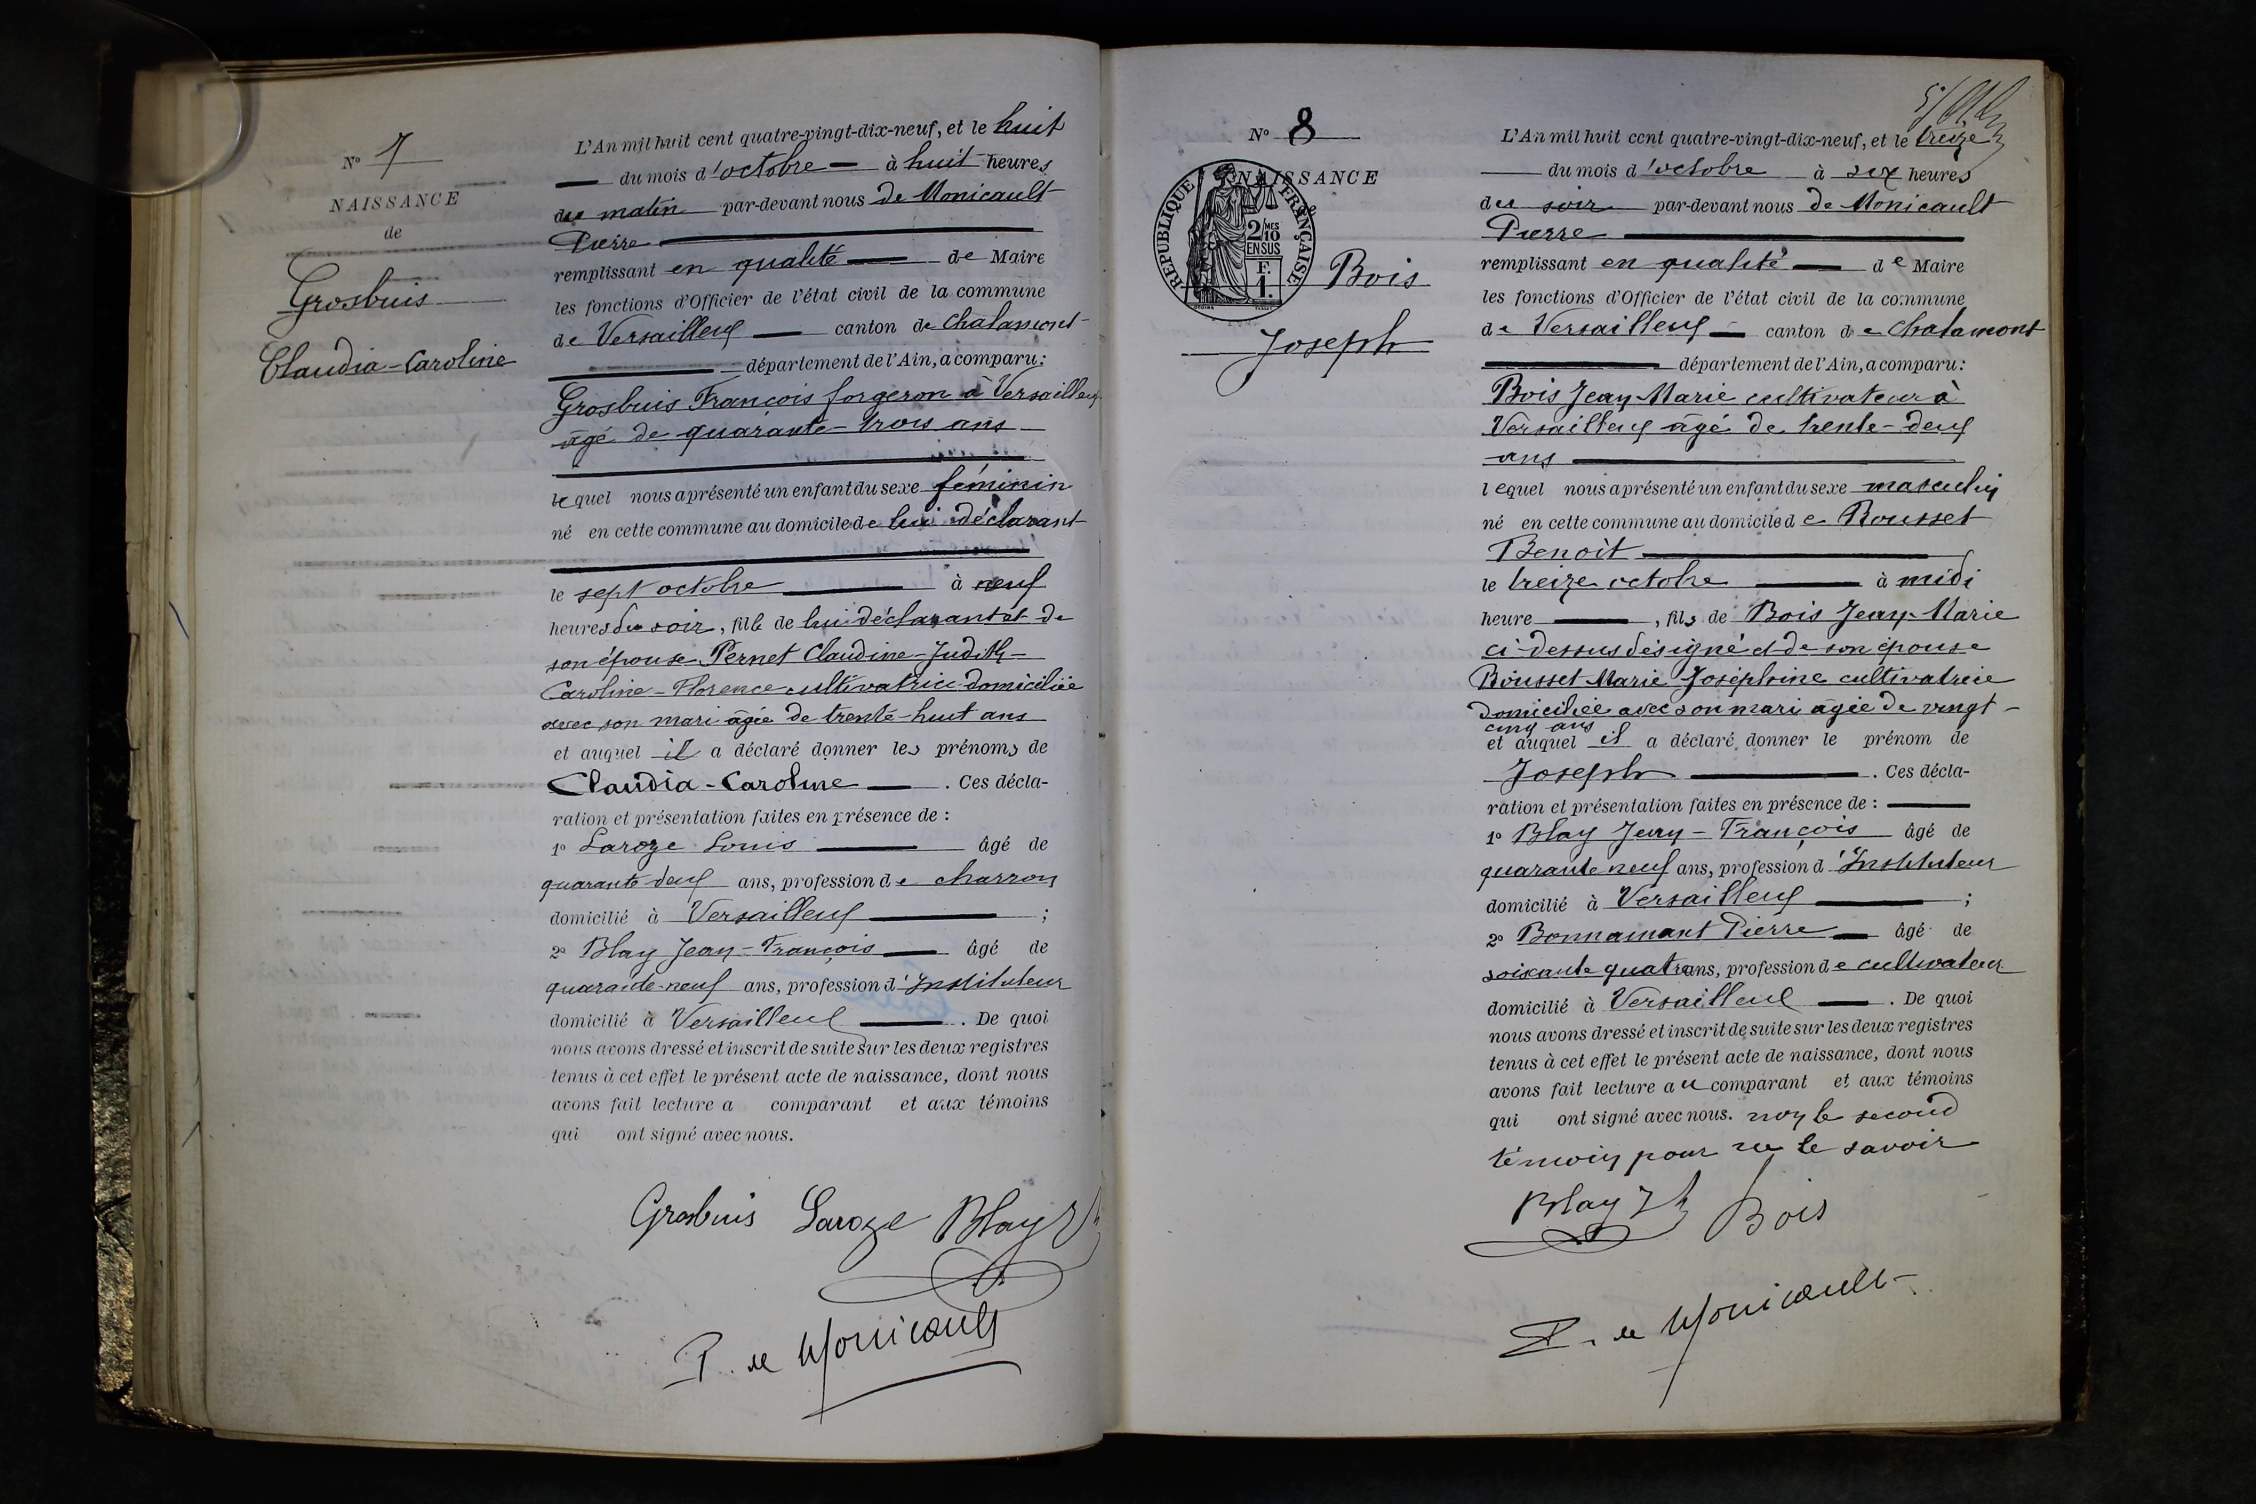 N° 7
NAISSANCE
de
Grosbuis
Claudia-Caroline
L'An mil huit cent quatre-vingt-dix-neuf, et le huit
du mois d'octobre à huit heures
du matin par-devant nous de Monicault
Pierre
remplissant en qualité de Maire
les fonctions d'Officier de l'état civil de la commune
de Versailleux canton de Chalamont
département de l'Ain, a comparu:
Grosbuis François forgeron à Versailleux
âgé de quarante-trois ans
lequel nous a présenté un enfant du sexe féminin
né en cette commune au domicile de lui déclarant
le sept octobre à neuf
heures du soir, fille de lui déclarant et de
son épouse Pernet Claudine-Judith-
Caroline-Florence cultivatrice domiciliée
avec son mari âgée de trente-huit ans
et auquel il a déclaré donner les prénoms de
Claudia-Caroline. Ces décla-
ration et présentation faites en présence de :
1° Laroze Louis âgé de
quarante deux ans, profession de charron
domicilié à Versailleux ;
2° Blay Jean-François âgé de
quarante-neuf ans, profession d'Instituteur
domicilié à Versailleux. De quoi
nous avons dressé et inscrit de suite sur les deux registres
tenus à cet effet le présent acte de naissance, dont nous
avons fait lecture a comparant et aux témoins
qui ont signé avec nous.
Grosbuis Laroze Blay
P. de Monicault
N° 8
NAISSANCE
RÉPUBLIQUE FRANÇAISE
2/10MES
EN SUS
F.
1.
Bois
Joseph
L'An mil huit cent quatre-vingt-dix-neuf, et le treize
du mois d'octobre à six heures
du soir par-devant nous de Monicault
Pierre
remplissant en qualité de Maire
les fonctions d'Officier de l'état civil de la commune
de Versailleux canton de Chalamont
département de l'Ain, a comparu:
Bois Jean-Marie cultivateur à
Versailleux âgé de trente-deux
ans
lequel nous a présenté un enfant du sexe masculin
né en cette commune au domicile de Rousset
Benoît
le treize octobre à midi
heure , fils de Bois Jean-Marie
ci-dessus désigné et de son épouse
Bousset Marie Joséphine cultivatrice
domiciliée avec son mari âgée de vingt-
cinq ans
et auquel il a déclaré donner le prénom de
Joseph. Ces décla-
ration et présentation faites en présence de :
1° Blay Jean-François âgé de
quarante neuf ans, profession d'Instituteur
domicilié à Versailleux ;
2° Bonnamant Pierre âgé de
soixante quatre ans, profession de cultivateur
domicilié à Versailleux. De quoi
nous avons dressé et inscrit de suite sur les deux registres
tenus à cet effet le présent acte de naissance, dont nous
avons fait lecture au comparant et aux témoins
qui ont signé avec nous. non le second
témoin pour ne le savoir
Blay Bois
P. de Monicault